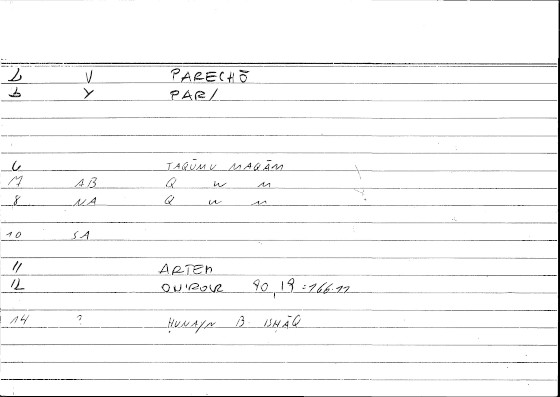 1 V PARECHŌ
b Y PAR/
6 TAQŪMU MAQĀM
7 AB Q w m
8 NA Q w m
10 SA
11 ARTEM
12 ON'ROCR 90,19=166.11
14 ? ḤUNAYN B ISḤĀQ